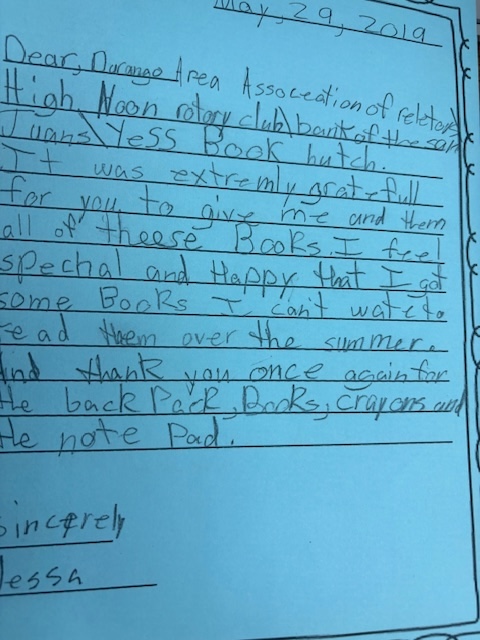 May, 29, 2019
Dear, Durango Area Assoceation of reletors
High Noon rotory club\bank of the san
Juans\Yess Book hutch.
It was extremly gratefull
for you to give me and them
all of theese Books. I feel
spechal and Happy that I got
some Books I can't wate to
read them over the summer.
And thank you once again for
the back Pack, Books, crayons and
the note Pad.
Sincerely
essa